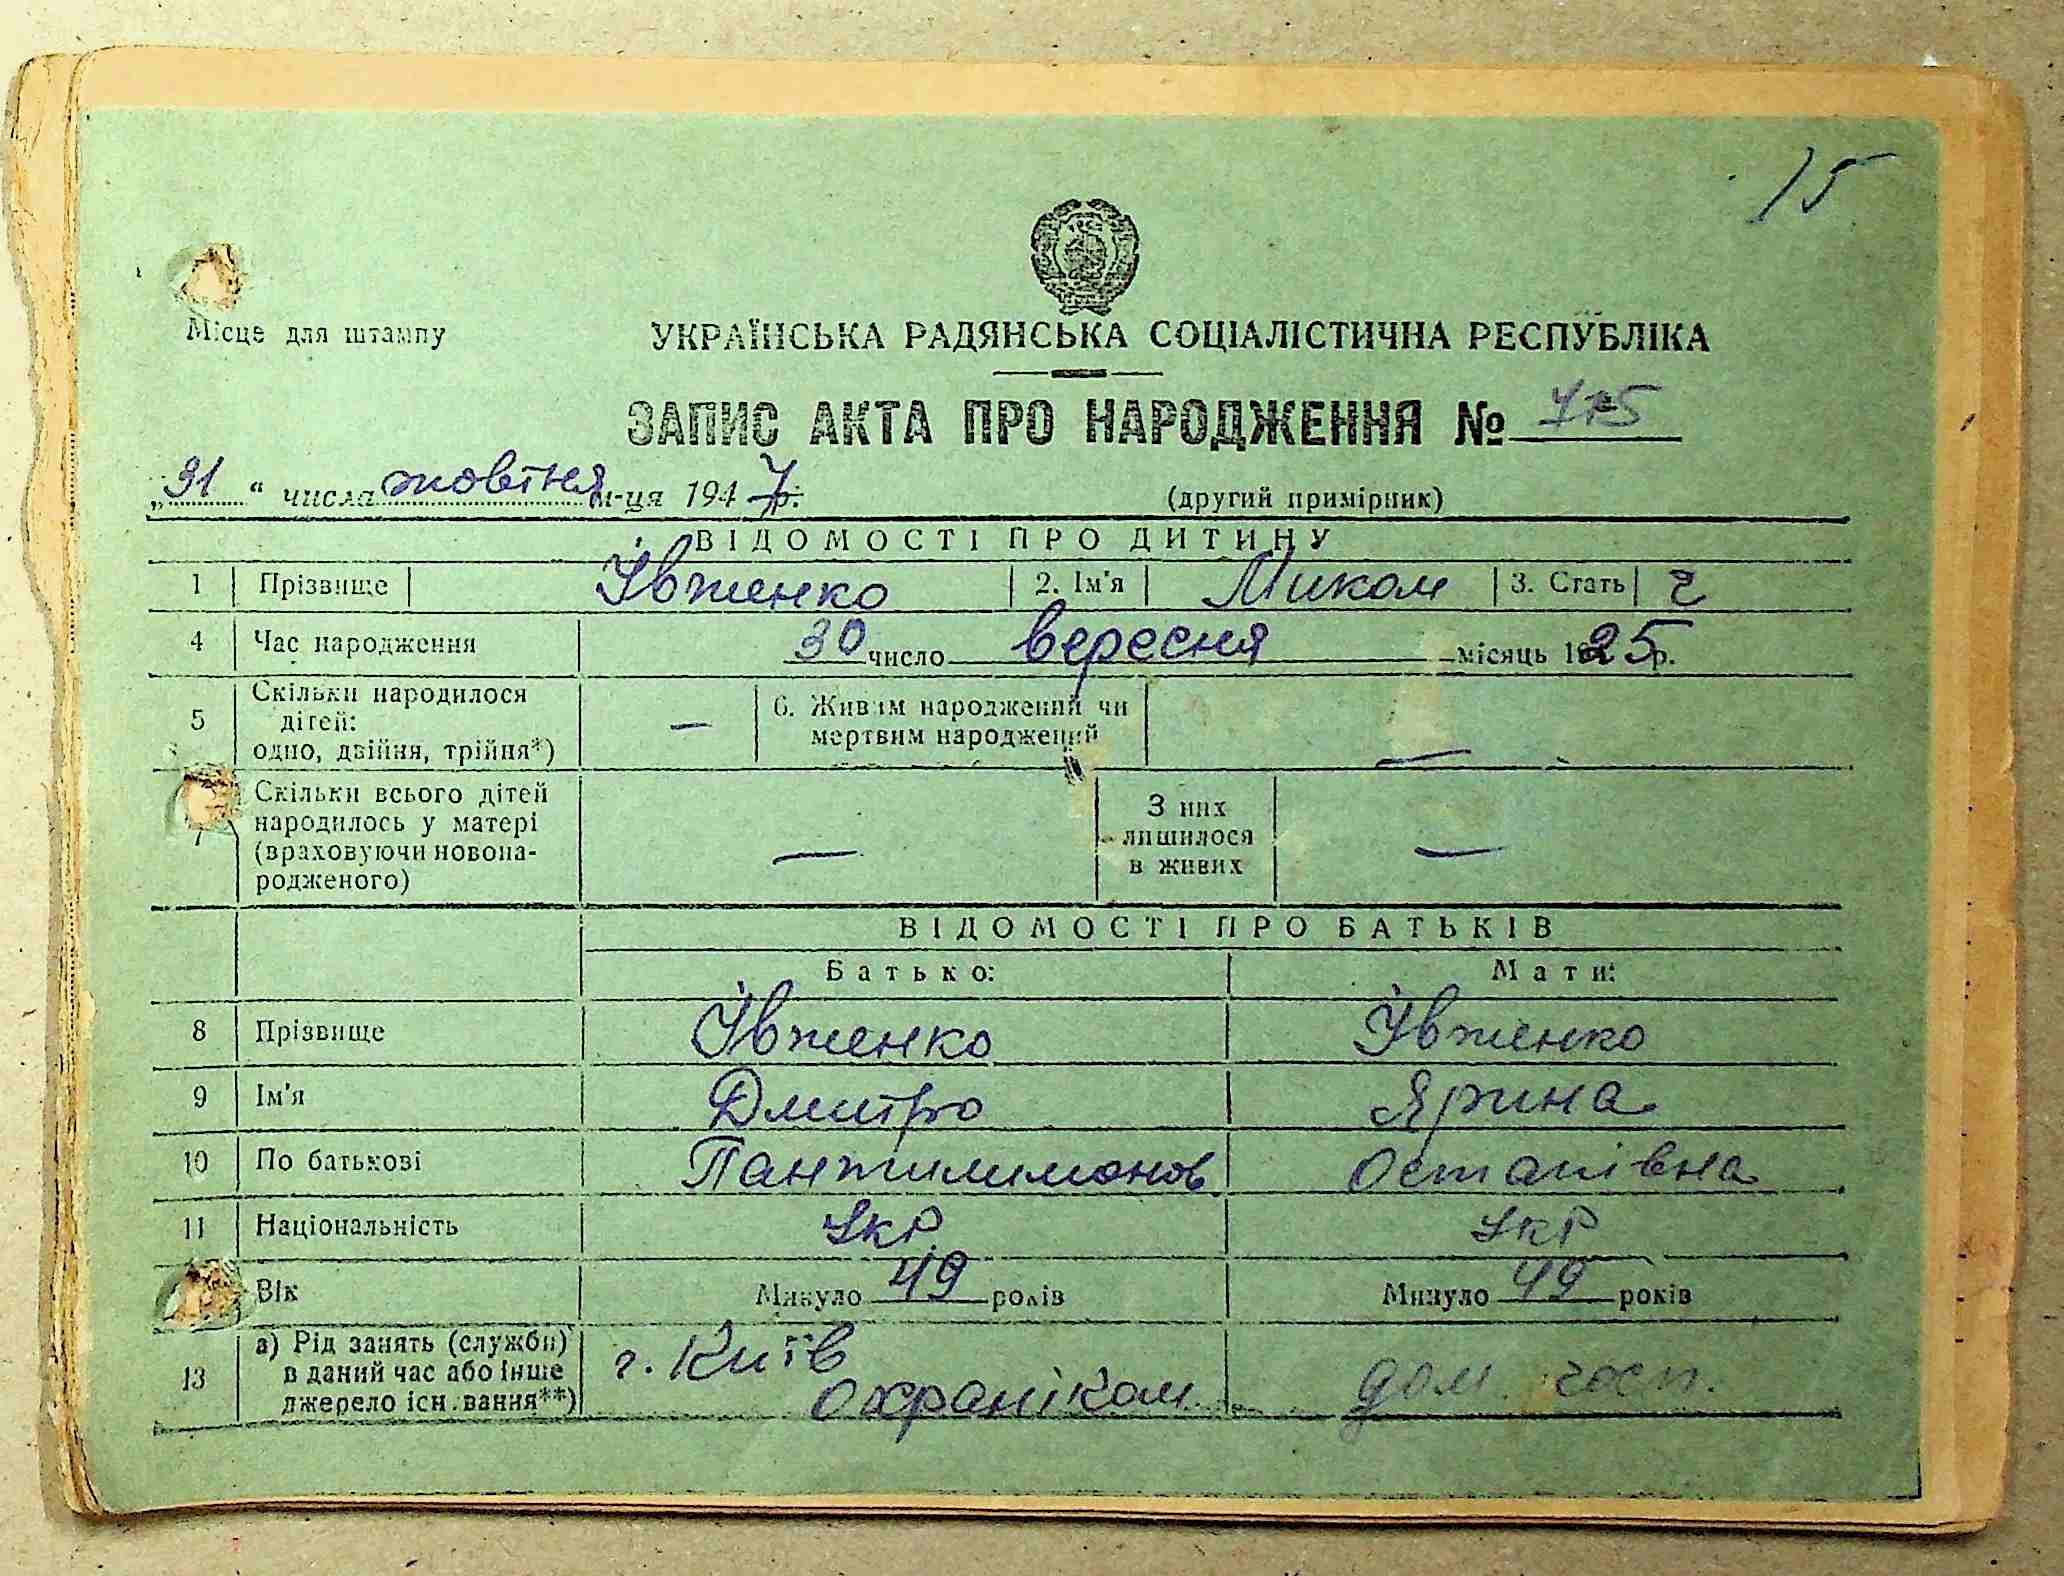 15
Місце для штампу
УКРАЇНСЬКА РАДЯНСЬКА СОЦІАЛІСТИЧНА РЕСПУБЛІКА
ЗАПИС АКТА ПРО НАРОДЖЕННЯ №
„31“ числа жовтня м-ця 1947р.
(другий примірник)
ВІДОМОСТІ ПРО ДИТИНУ
1 Прізвище Івженко 2. Ім'я Микола 3. Стать ч
4 Час народження 30 число вересня місяць 1925р.
5 Скільки народилося дітей: одно, двійня, трійня*) — 6. Живим народжений чи мертвим народжений —
7 Скільки всього дітей народилось у матері (враховуючи новонародженого) — З них лишилося в живих —
ВІДОМОСТІ ПРО БАТЬКІВ
Батько: Мати:
8 Прізвище Івженко Івженко
9 Ім'я Дмитро Ярина
10 По батькові Пантилимонов Остапівна
11 Національність Укр. Укр
Вік Минуло 49 років Минуло 49 років
13 а) Рід занять (служби) в даний час або інше джерело існування**) г. Київ охраніком дом. госп.